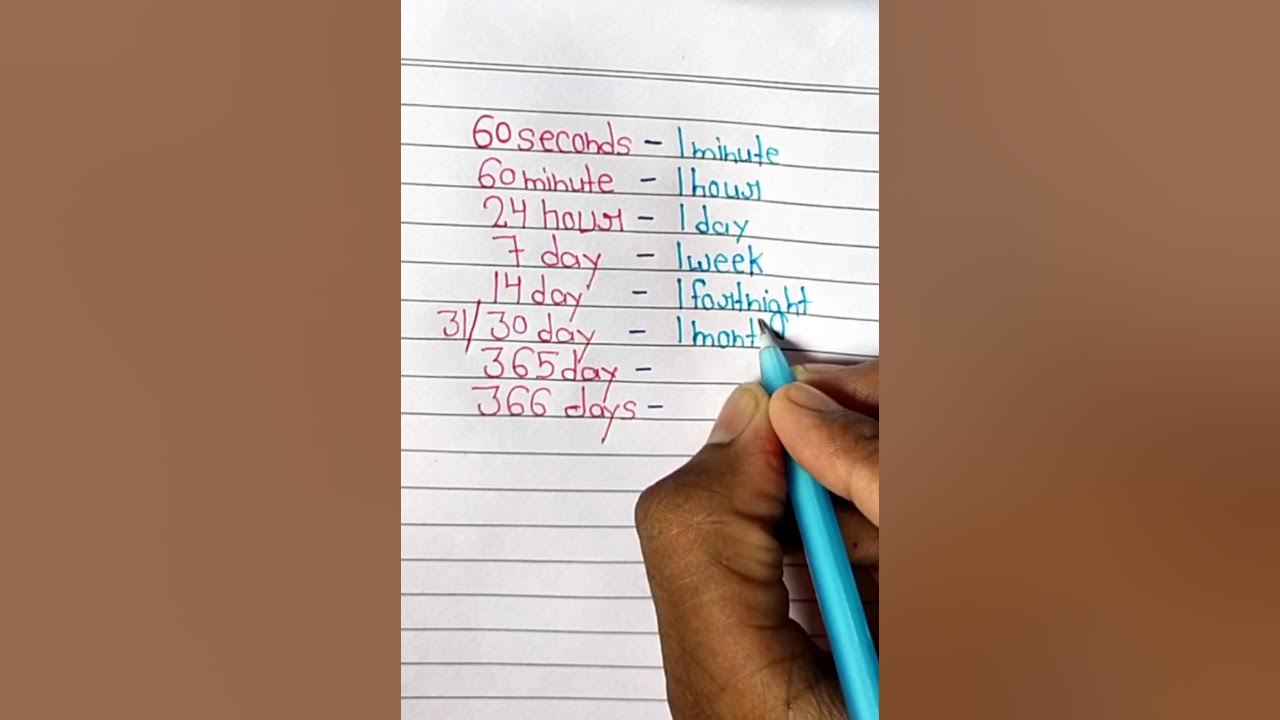 60 seconds - 1 minute
60 minute - 1 hour
24 hour - 1 day
7 day - 1 week
14 day - 1 fortnight
31/30 day - 1 mont
365 day -
366 days -